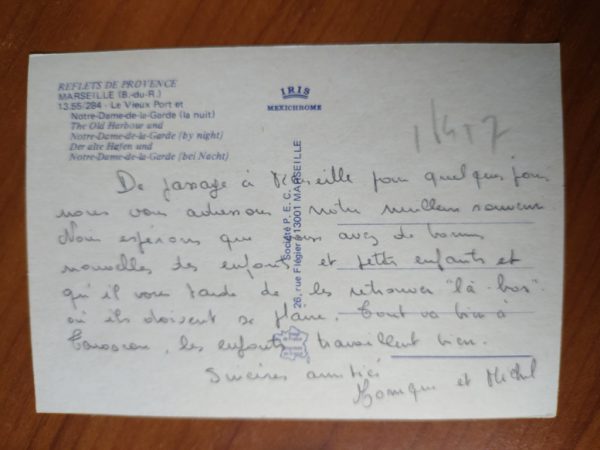 REFLETS DE PROVENCE
MARSEILLE (B.-du-R.)
13.55/284 - Le Vieux Port et
Notre-Dame-de-la-Garde (la nuit)
The Old Harbour and
Notre-Dame-de-la-Garde (by night)
Der alte Hafen und
Notre-Dame-de-la-Garde (bei Nacht)
IRIS
MEXICHROME
Société P.E.C.
26, rue Flégier - 13001 MARSEILLE
De passage à Marseille pour quelques jours
nous vous adressons notre meilleur souvenir
Nous espérons que vous avez de bonnes
nouvelles des enfants et petits enfants et
qu'il vous tarde de les retrouver "là-bas"
où ils doivent se plaire. Tout va bien à
Tarascon, les enfants travaillent bien.
Sincères amitiés
Monique et Michel